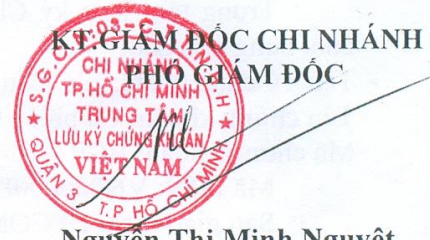 KT.GIÁM ĐỐC CHI NHÁNH
PHÓ GIÁM ĐỐC
CHI NHÁNH
TP.HỒ CHÍ MINH
TRUNG TÂM
LƯU KÝ CHỨNG KHOÁN
VIỆT NAM
QUẬN 3
T.P HỒ CHÍ MINH
Nguyễn Thị Minh Nguyệt